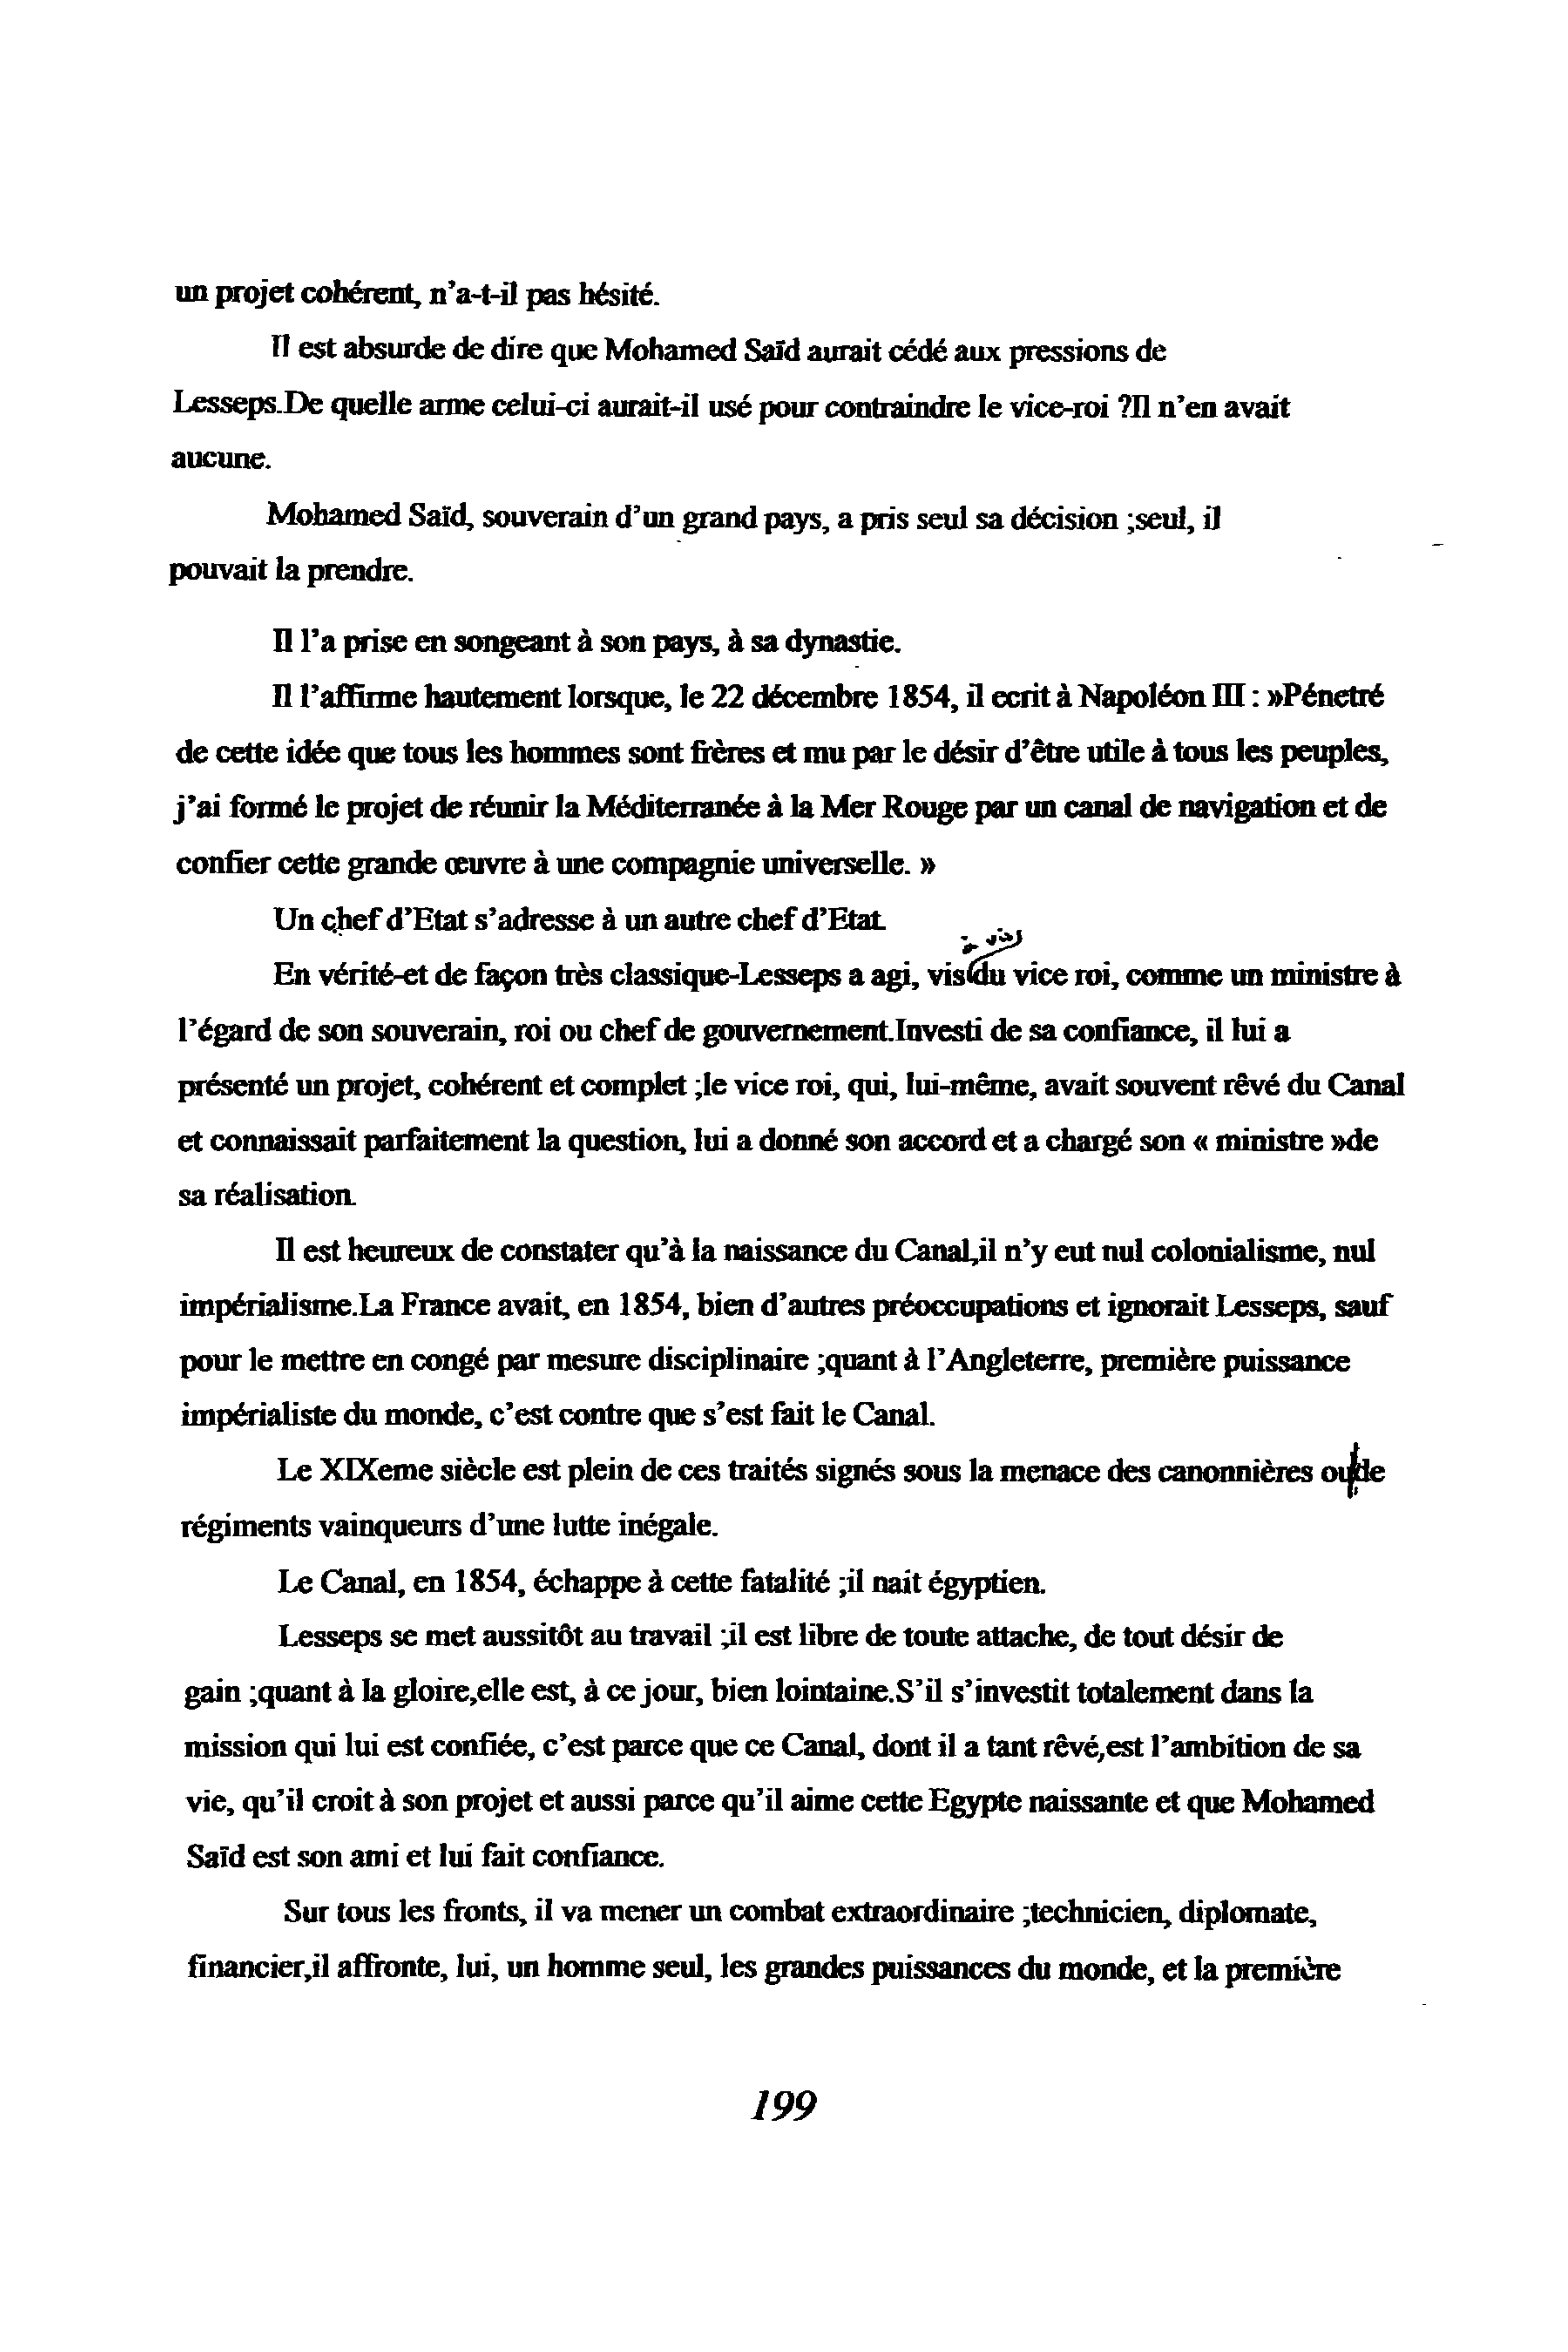 un projet cohérent, n'a-t-il pas hésité.
Il est absurde de dire que Mohamed Saïd aurait cédé aux pressions de
Lesseps.De quelle arme celui-ci aurait-il usé pour contraindre le vice-roi ?Il n'en avait
aucune.
Mohamed Saïd, souverain d'un grand pays, a pris seul sa décision ;seul, il
pouvait la prendre.
Il l'a prise en songeant à son pays, à sa dynastie.
Il l'affirme hautement lorsque, le 22 décembre 1854, il ecrit à Napoléon III : »Pénetré
de cette idée que tous les hommes sont frères et mu par le désir d'être utile à tous les peuples,
j'ai formé le projet de réunir la Méditerranée à la Mer Rouge par un canal de navigation et de
confier cette grande œuvre à une compagnie universelle. »
Un chef d'Etat s'adresse à un autre chef d'Etat.
à vis
En vérité-et de façon très classique-Lesseps a agi, vis du vice roi, comme un ministre à
l'égard de son souverain, roi ou chef de gouvernement.Investi de sa confiance, il lui a
présenté un projet, cohérent et complet ;le vice roi, qui, lui-même, avait souvent rêvé du Canal
et connaissait parfaitement la question, lui a donné son accord et a chargé son « ministre »de
sa réalisation.
Il est heureux de constater qu'à la naissance du Canal,il n'y eut nul colonialisme, nul
impérialisme.La France avait, en 1854, bien d'autres préoccupations et ignorait Lesseps, sauf
pour le mettre en congé par mesure disciplinaire ;quant à l'Angleterre, première puissance
impérialiste du monde, c'est contre que s'est fait le Canal.
Le XIXeme siècle est plein de ces traités signés sous la menace des canonnières ou de
régiments vainqueurs d'une lutte inégale.
Le Canal, en 1854, échappe à cette fatalité ;il nait égyptien.
Lesseps se met aussitôt au travail ;il est libre de toute attache, de tout désir de
gain ;quant à la gloire,elle est, à ce jour, bien lointaine.S'il s'investit totalement dans la
mission qui lui est confiée, c'est parce que ce Canal, dont il a tant rêvé,est l'ambition de sa
vie, qu'il croit à son projet et aussi parce qu'il aime cette Egypte naissante et que Mohamed
Saïd est son ami et lui fait confiance.
Sur tous les fronts, il va mener un combat extraordinaire ;technicien, diplomate,
financier,il affronte, lui, un homme seul, les grandes puissances du monde, et la première
199